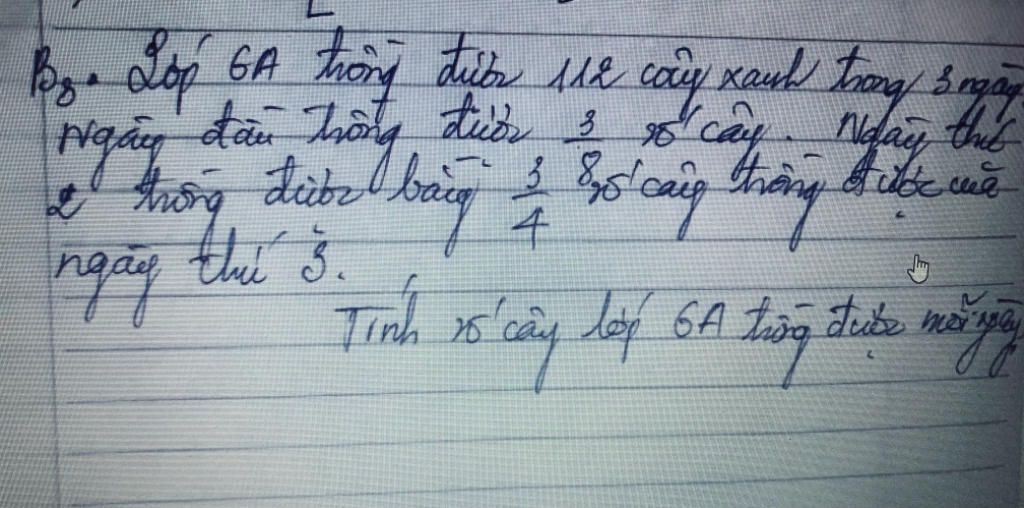 B8. Lớp 6A trồng được 112 cây xanh trong 3 ngày
Ngày đầu trồng được 3/8 số cây. Ngày thứ
2 trồng được bằng 3/4 số cây trồng được của
ngày thứ 3.
Tính số cây lớp 6A trồng được mỗi ngày